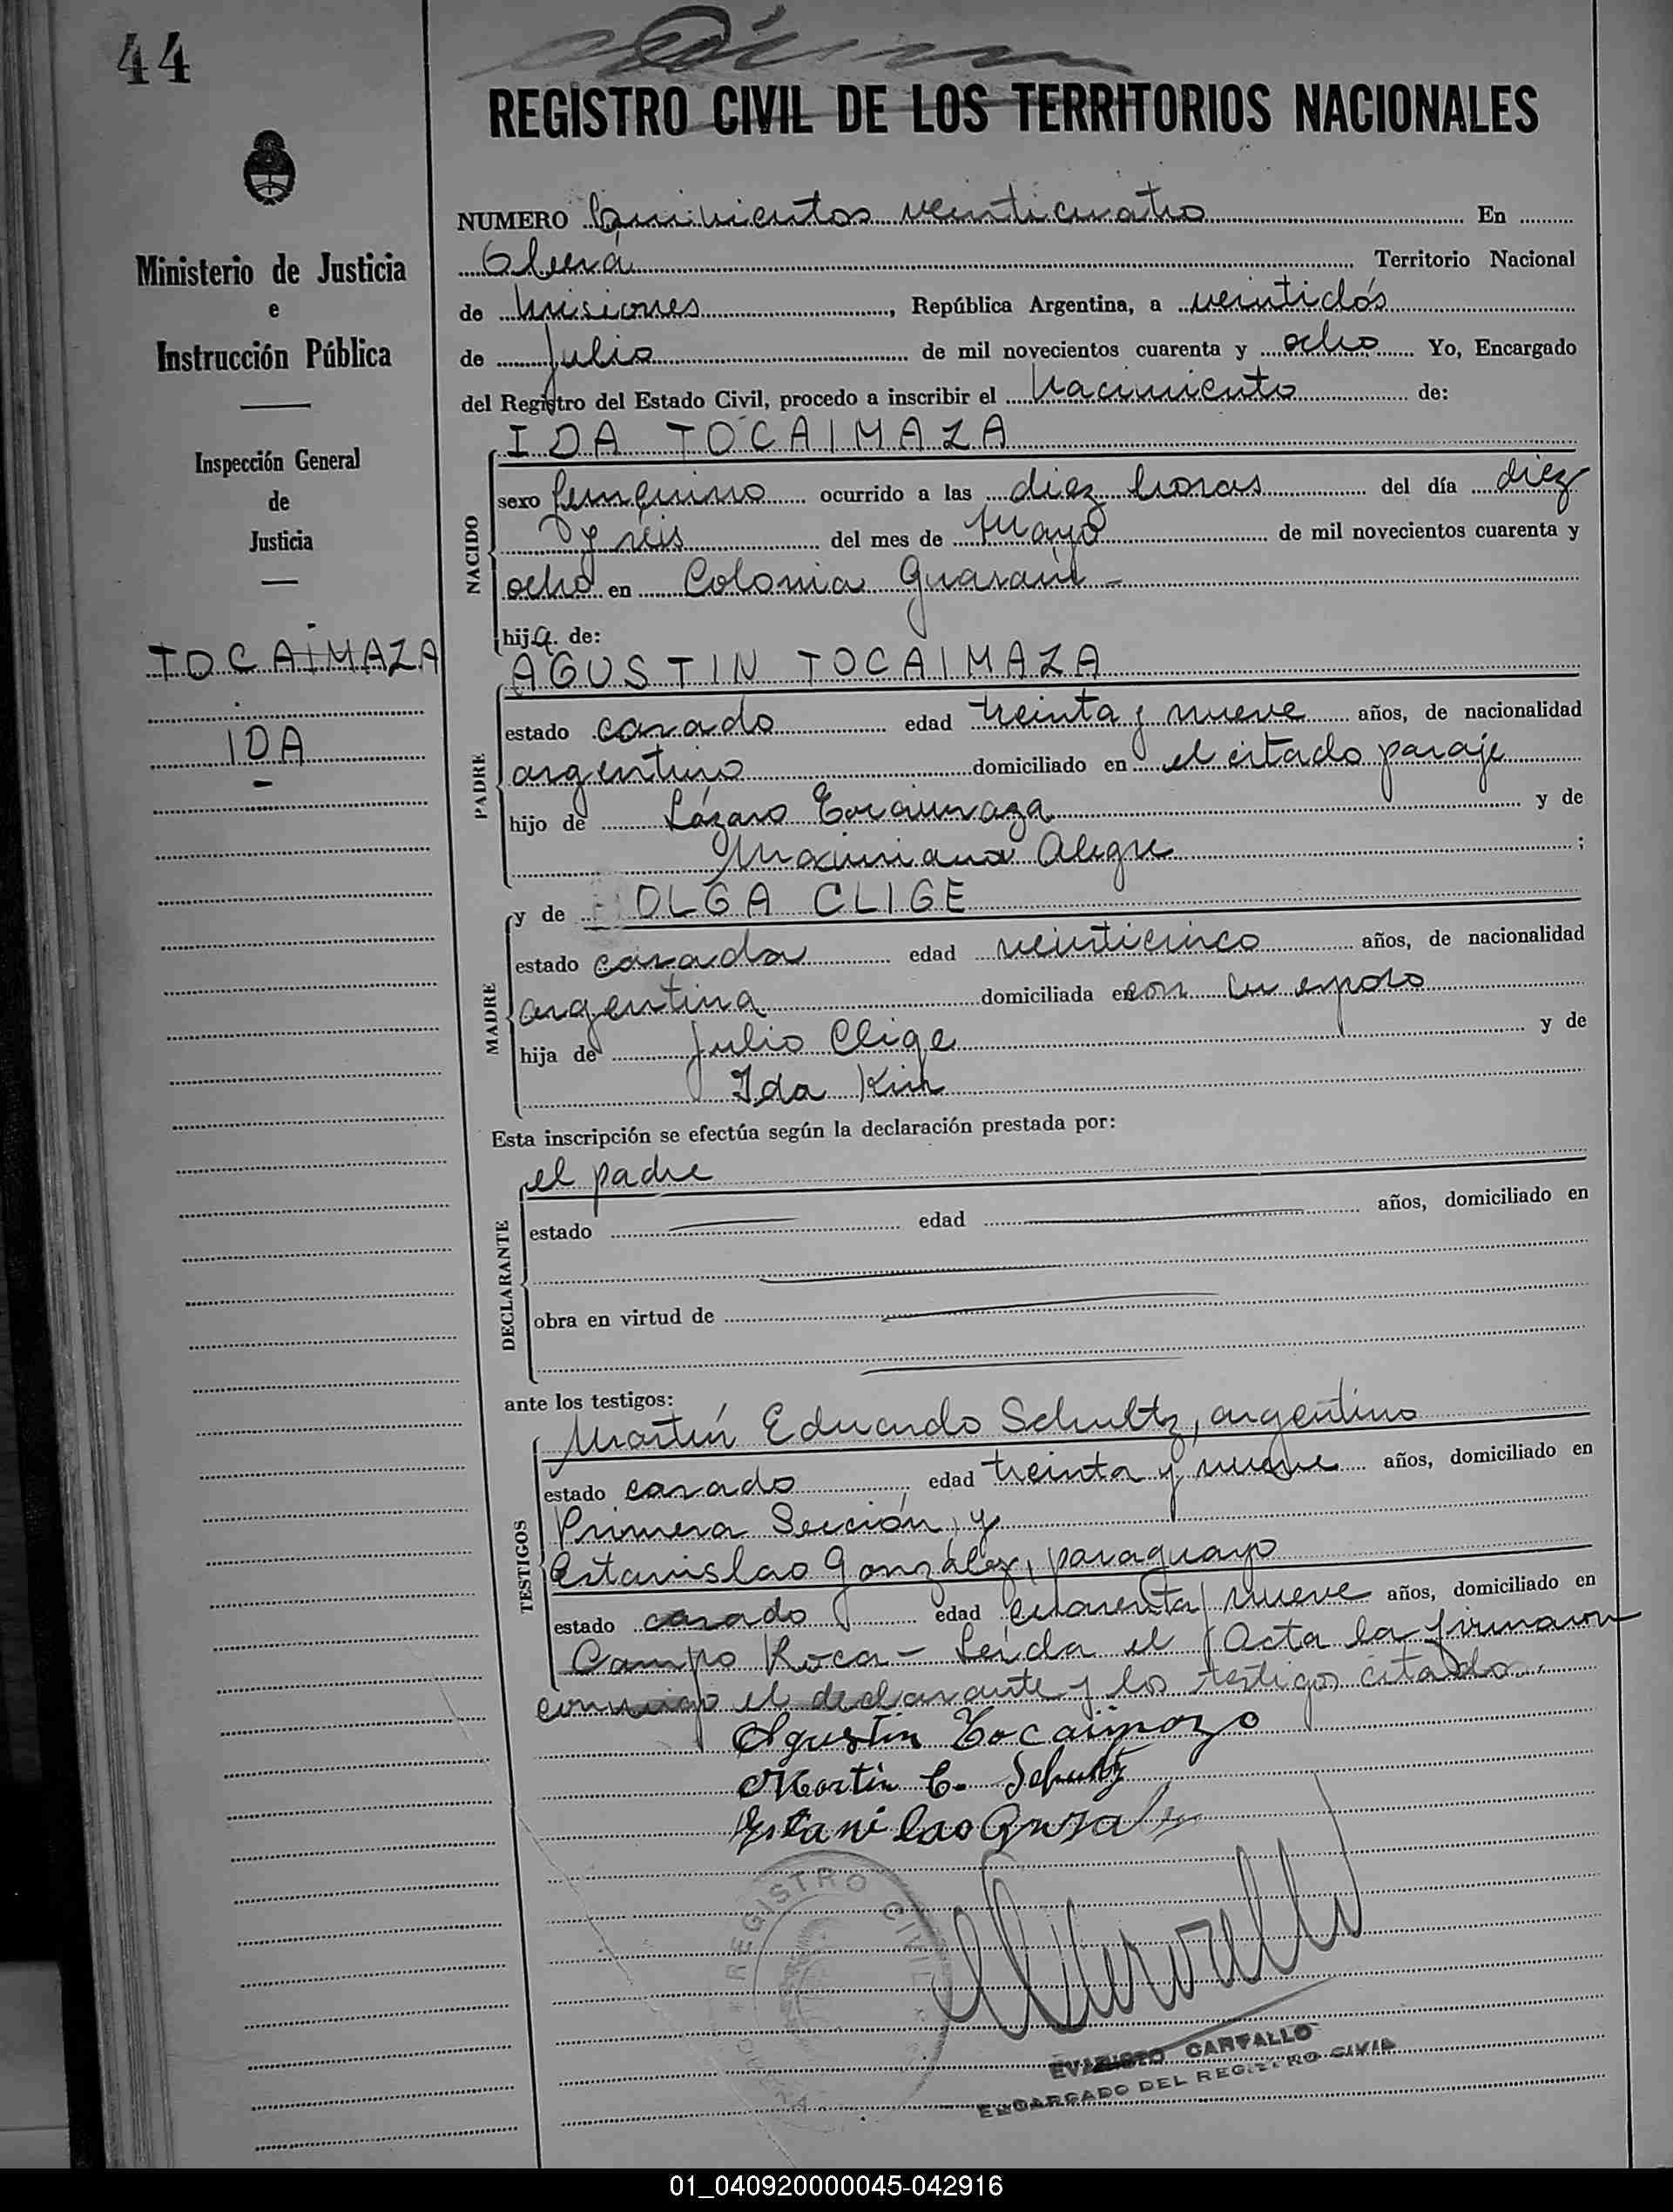 44
REGISTRO CIVIL DE LOS TERRITORIOS NACIONALES
Ministerio de Justicia
e
Instrucción Pública
Inspección General
de
Justicia
TOCAIMAZA
IDA
NUMERO Quinientos veinticuatro En
Oberá Territorio Nacional
de Misiones, República Argentina, a veintidós
de Julio de mil novecientos cuarenta y ocho Yo, Encargado
del Registro del Estado Civil, procedo a inscribir el Nacimiento de:
NACIDO
IDA TOCAIMAZA
sexo femenino ocurrido a las diez horas del día diez
y séis del mes de Mayo de mil novecientos cuarenta y
ocho en Colonia Guaraní -
hija de:
PADRE
AGUSTIN TOCAIMAZA
estado casado edad treinta y nueve años, de nacionalidad
argentino domiciliado en el citado paraje
hijo de Lázaro Tocaimaza y de
Maximiana Alegre ;
MADRE
y de OLGA CLIGE
estado casada edad veinticinco años, de nacionalidad
argentina domiciliada con su esposo
hija de Julio Clige y de
Ida
Esta inscripción se efectúa según la declaración prestada por:
DECLARANTE
el padre
estado edad años, domiciliado en
obra en virtud de
ante los testigos:
TESTIGOS
Martín Eduardo Schultz, argentino
estado casado edad treinta y nueve años, domiciliado en
Primera Sección, y
Estanislao González, paraguayo
estado casado edad cuarenta nueve años, domiciliado en
Campo Roca - Leída el Acta la firmaron
conmigo el declarante y los testigos citados.
Agustin Tocaimaza
Martin E. Schultz
Estanilao
REGISTRO CIVIL
EVARISTO CARVALLO
ENCARGADO DEL REGISTRO CIVIL
01_040920000045-042916